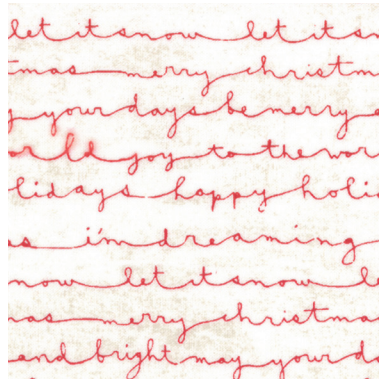 let it snow let it sn
tmas merry christm
y your days be merry a
orld joy to the wor
lidays happy holid
as i'm dreaming
now let it snow le
mas merry christmas
and bright may your da